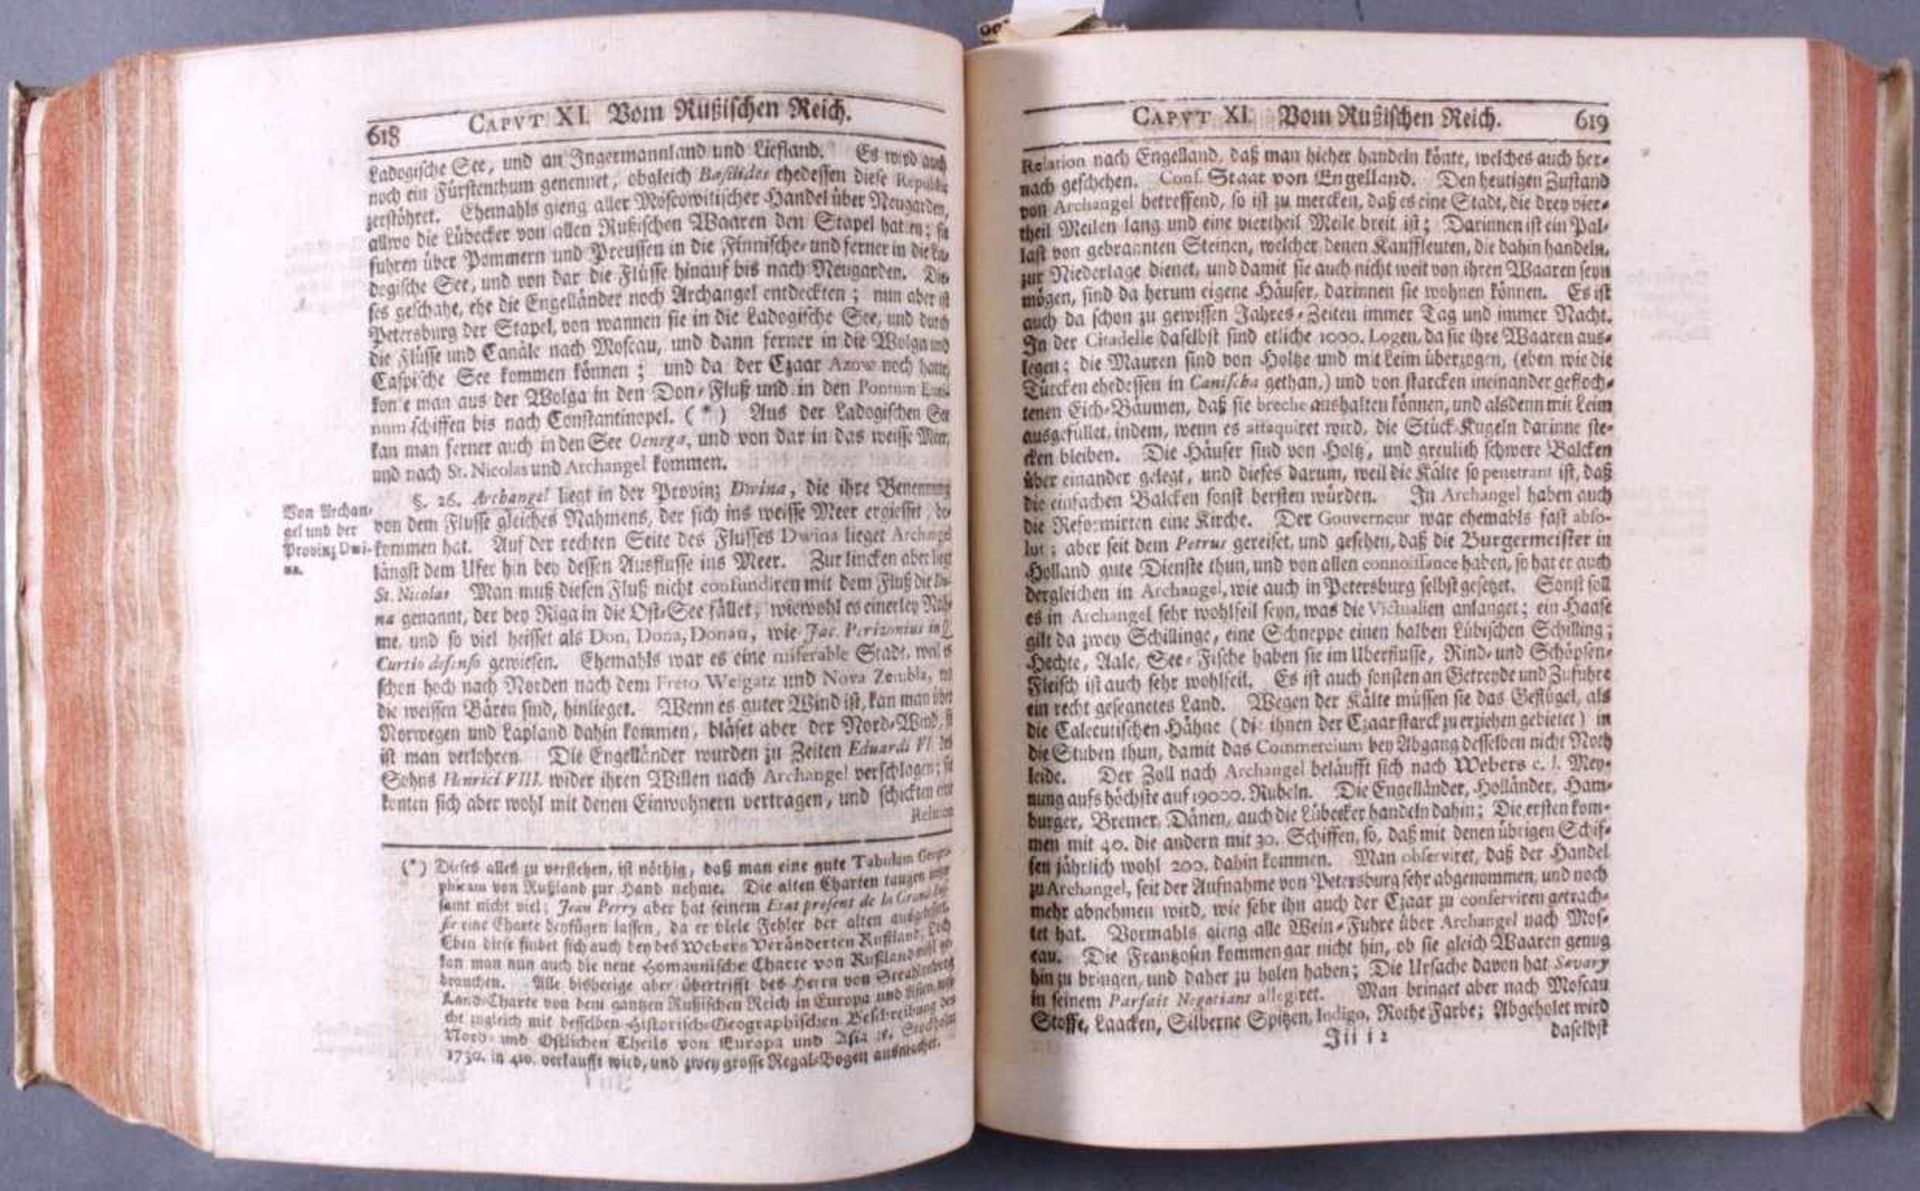 618 CAPVT XI. Vom Rußischen Reich.
Ladogische See, und an Ingermannland und Liefland. Es wird auch
noch ein Fürstenthum genennet, obgleich Basilides ehedessen diese Republic
zerstöhret. Ehemahls gieng aller Moscowitischer Handel über Neugarden,
allwo die Lübecker von allen Rußischen Waaren den Stapel hatten; sie
fuhren über Pommern und Preussen in die Finnische- und ferner in die La-
dogische See, und von dar die Flüsse hinauf bis nach Neugarden. Die-
ses geschahe, ehe die Engelländer noch Archangel entdeckten; nun aber ist
Petersburg der Stapel, von wannen sie in die Ladogische See, und durch
die Flüsse und Canäle nach Moscau, und dann ferner in die Wolga und
Caspische See kommen können; und da der Czaar Azow noch hatte,
konte man aus der Wolga in den Don-Fluß und in den Pontum Euxi-
num schiffen bis nach Constantinopel. (*) Aus der Ladogischen See
kan man ferner auch in den See Oenega, und von dar in das weisse Meer,
und nach St. Nicolas und Archangel kommen.
Von Archan-
gel und der
Provinz Dwi-
na.
§. 26. Archangel liegt in der Provinz Dwina, die ihre Benennung
von dem Flusse gleiches Nahmens, der sich ins weisse Meer ergiesset, be-
kommen hat. Auf der rechten Seite des Flusses Dwina lieget Archangel
längst dem Ufer hin bey dessen Ausflusse ins Meer. Zur lincken aber liegt
St. Nicolas Man muß diesen Fluß nicht confundiren mit dem Fluß die Du-
na genannt, der bey Riga in die Ost-See fället, wiewohl es einerley Nah-
me, und so viel heisset als Don, Dona, Donau, wie Jac. Perizonius in Q.
Curtio defenso gewiesen. Ehemahls war es eine miserable Stadt, weil es
schon hoch nach Norden nach dem Freto Weigatz und Nova Zembla, wo
die weissen Bären sind, hinlieget. Wenn es guter Wind ist, kan man über
Norwegen und Lapland dahin kommen, bläset aber der Nord-Wind, so
ist man verlohren. Die Engelländer wurden zu Zeiten Eduardi VI. des
Sohns Henrici VIII. wider ihren Willen nach Archangel verschlagen; sie
konten sich aber wohl mit denen Einwohnern vertragen, und schickten eine
Relation
(*) Dieses alles zu verstehen, ist nöthig, daß man eine gute Tabulam Geogra-
phicam von Rußland zur Hand nehme. Die alten Charten taugen insge-
samt nicht viel; Jean Perry aber hat seinem Etat present de la Grande Rus-
sie eine Charte beyfügen lassen, da er viele Fehler der alten ausgebessert.
Eben diese findet sich auch bey des Webers Veränderten Rußland; Doch
kan man nun auch die neue Homannische Charte von Rußland wohl ge-
brauchen. Alle bisherige aber übertrifft des Herrn von Strahlenberg
Land-Charte von dem gantzen Rußischen Reich in Europa und Asien, wel-
che zugleich mit desselben Historisch-Geographischen Beschreibung des
Nord- und Ostlichen Theils von Europa und Asia ꝛc. Stockholm
1730. in 4to. verkaufft wird, und zwey grosse Regal-Bogen ausmachet.
CAPVT XI. Vom Rußischen Reich. 619
Relation nach Engelland, daß man hieher handeln könte, welches auch her-
nach geschehen. Conf. Staat von Engelland. Den heutigen Zustand
von Archangel betreffend, so ist zu mercken, daß es eine Stadt, die drey vier-
theil Meilen lang und eine viertheil Meile breit ist; Darinnen ist ein Pal-
last von gebrannten Steinen, welcher denen Kauffleuten, die dahin handeln,
zur Niederlage dienet, und damit sie auch nicht weit von ihren Waaren seyn
mögen, sind da herum eigene Häuser, darinnen sie wohnen können. Es ist
auch da schon zu gewissen Jahres-Zeiten immer Tag und immer Nacht.
In der Citadelle daselbst sind etliche 1000. Logen, da sie ihre Waaren aus-
legen; die Mauren sind von Holtze und mit Leim überzogen, (eben wie die
Türcken ehedessen in Canischa gethan,) und von starcken ineinander gefloch-
tenen Eich-Bäumen, daß sie breche aushalten können, und alsdenn mit Leim
ausgefüllet, indem, wenn es attaquiret wird, die Stück-Kugeln darinne ste-
cken bleiben. Die Häuser sind von Holtz, und greulich schwere Balcken
über einander gelegt, und dieses darum, weil die Kälte so penetrant ist, daß
die einfachen Balcken sonst bersten würden. In Archangel haben auch
die Reformirten eine Kirche. Der Gouverneur war ehemahls fast abso-
lut; aber seit dem Petrus gereiset, und gesehen, daß die Burgermeister in
Holland gute Dienste thun, und von allen connoissance haben, so hat er auch
dergleichen in Archangel, wie auch in Petersburg selbst gesetzet. Sonst soll
es in Archangel sehr wohlfeil seyn, was die Victualien anlanget; ein Haase
gilt da zwey Schillinge, eine Schneppe einen halben Lübischen Schilling;
Hechte, Aale, See-Fische haben sie im Uberflusse, Rind- und Schöpsen-
Fleisch ist auch sehr wohlfeil. Es ist auch sonsten an Getreyde und Zufuhre
ein recht gesegnetes Land. Wegen der Kälte müssen sie das Geflügel, als
die Calecutischen Hähne (die ihnen der Czaar starck zu erziehen gebietet) in
die Stuben thun, damit das Commercium bey Abgang desselben nicht Noth
leide. Der Zoll nach Archangel beläufft sich nach Webers c. l. Mey-
nung aufs höchste auf 19000. Rubeln. Die Engelländer, Holländer, Ham-
burger, Bremer, Dänen, auch die Lübecker handeln dahin; Die ersten kom-
men mit 40. die andern mit 30. Schiffen, so, daß mit denen übrigen Schif-
fen jährlich wohl 200. dahin kommen. Man observiret, daß der Handel
zu Archangel, seit der Aufnahme von Petersburg sehr abgenommen, und noch
mehr abnehmen wird, wie sehr ihn auch der Czaar zu conserviren getrach-
tet hat. Vormahls gieng alle Wein-Fuhre über Archangel nach Mos-
cau. Die Frantzosen kommen gar nicht hin, ob sie gleich Waaren genug
hin zu bringen, und daher zu holen haben; Die Ursache davon hat Savary
in seinem Parfait Negotiant allegiret. Man bringet aber nach Moscau
Stoffe, Laacken, Silberne Spitzen, Indigo, Rothe Farbe; Abgeholet wird
Iiii 2 daselbst